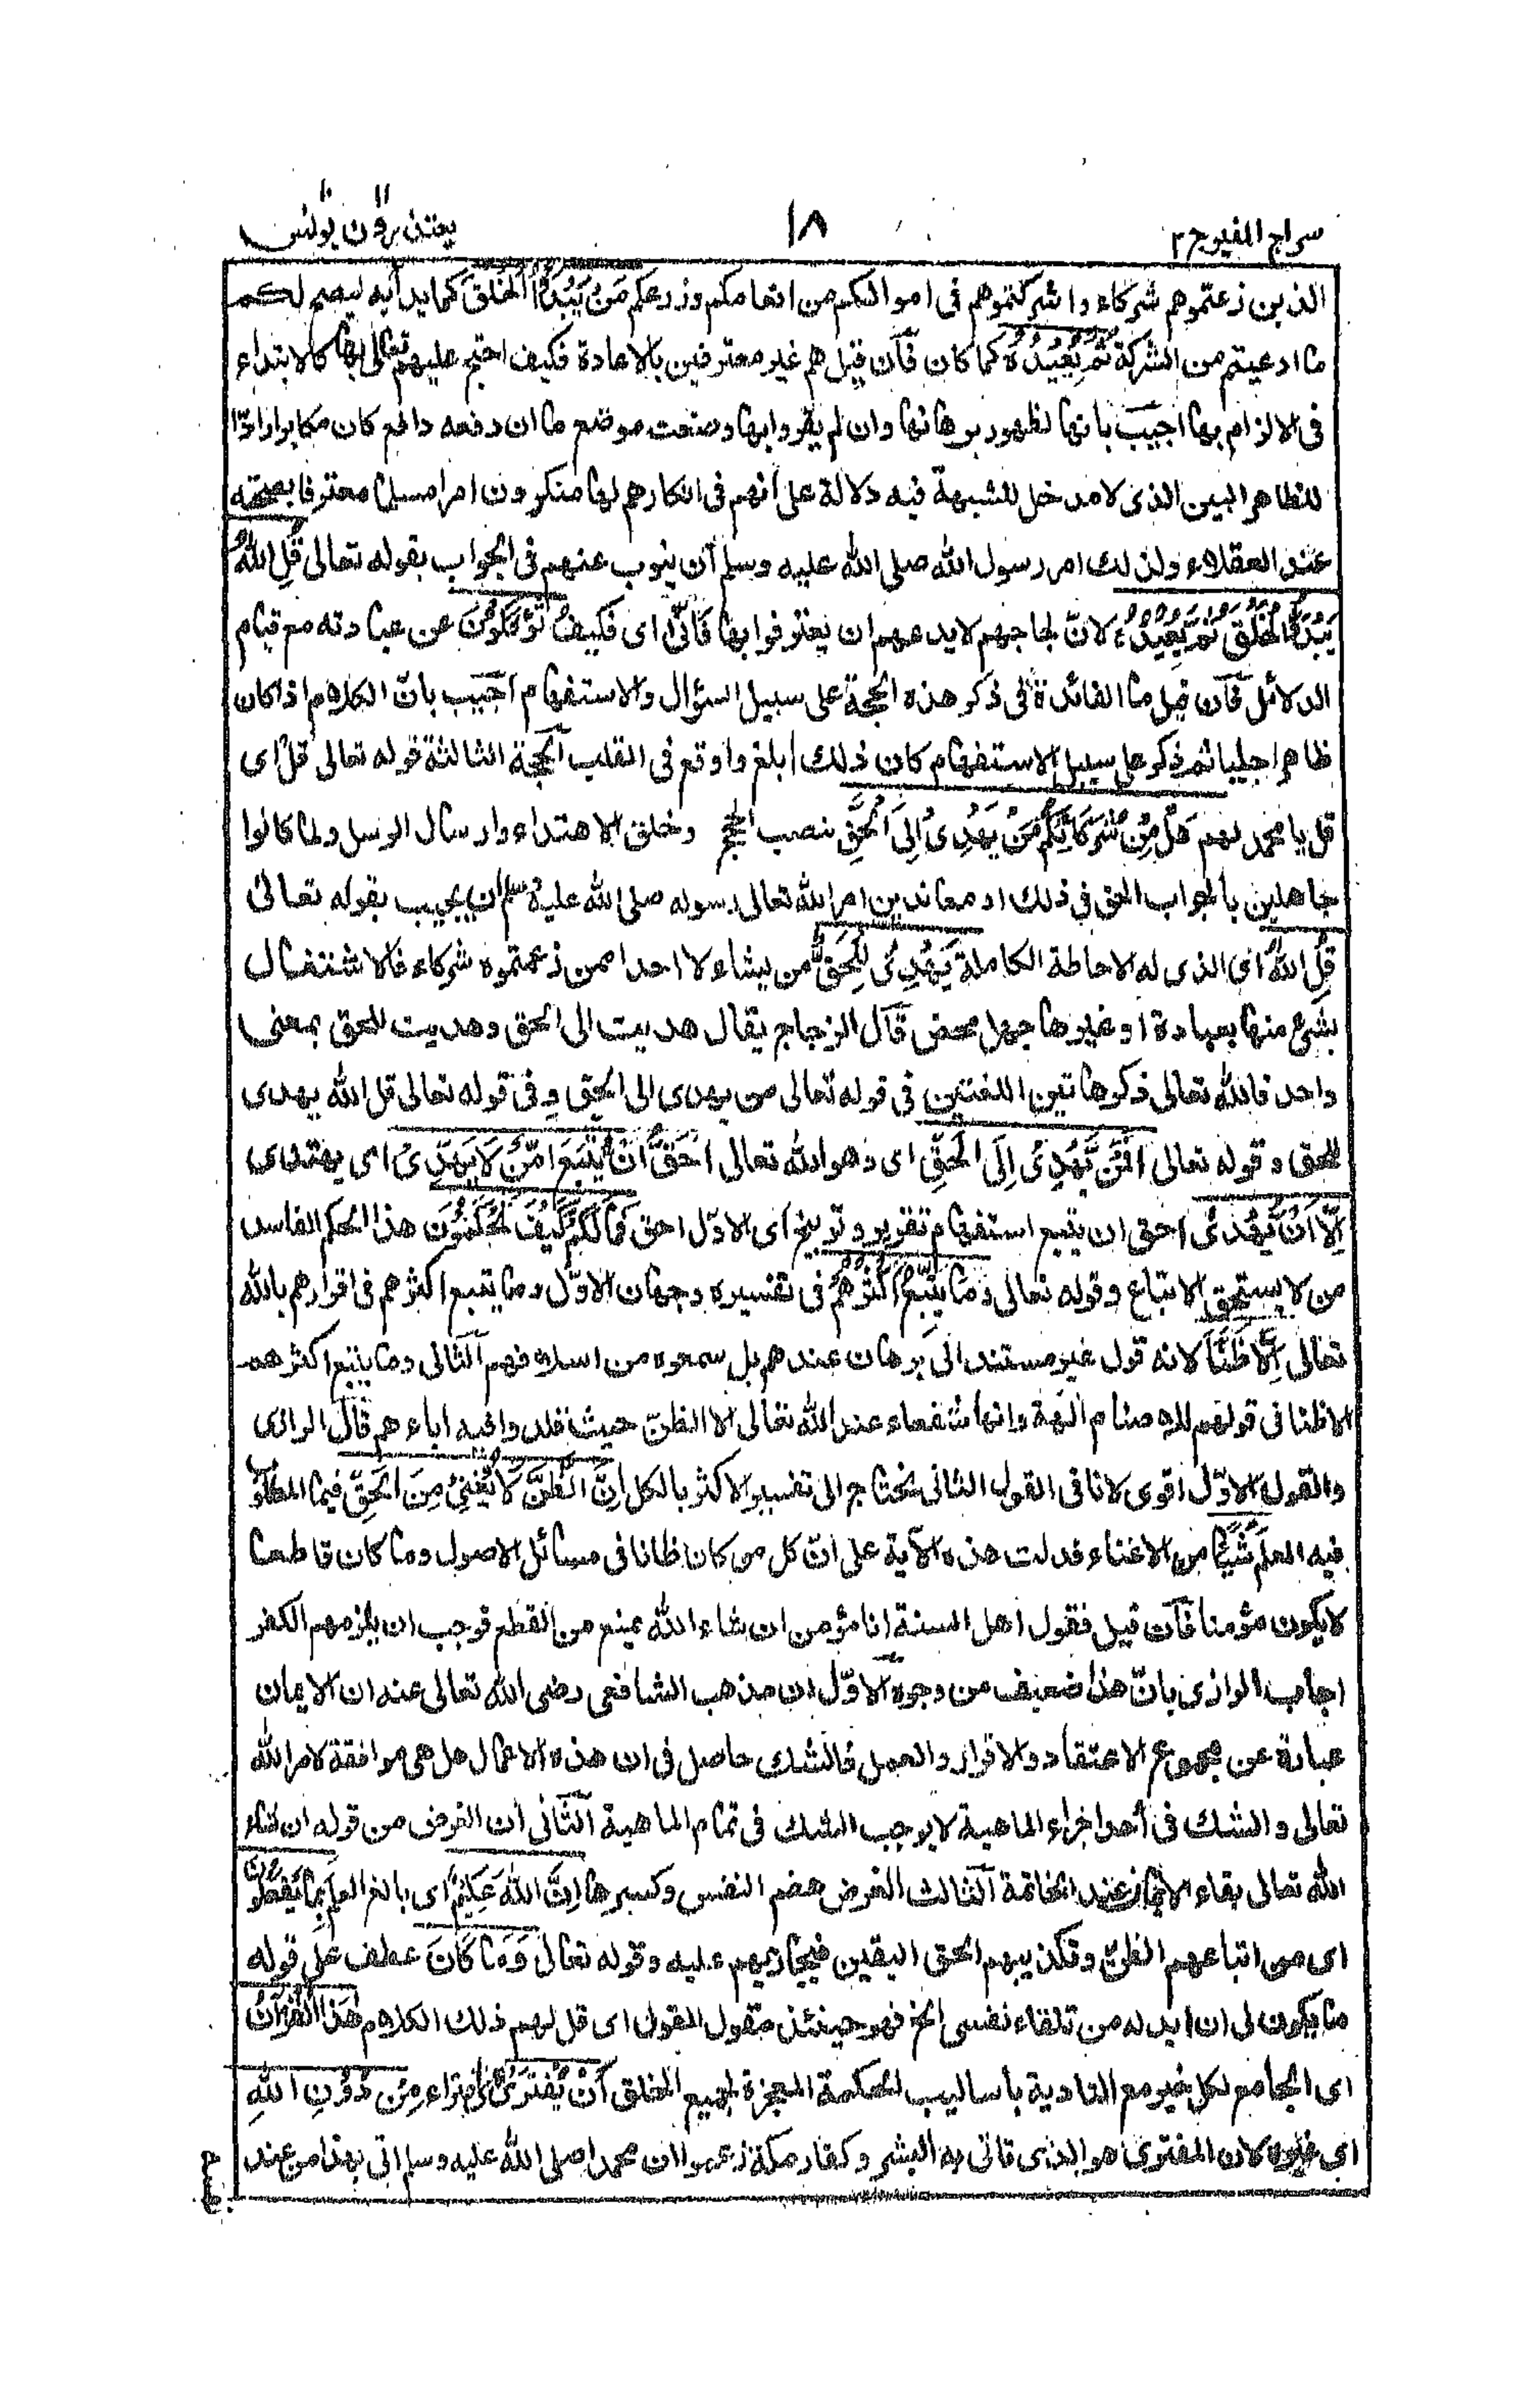 سراج المنير ج ٢
١٨
يعتذرون ١١ يونس ١٠
الذين زعمتموهم شركاء واشركتموهم فى اموالكم من انعامكم وزرعكم مَنْ يَّبْدَؤُا الْخَلْقَ كما بدأ به ليصح لكم
ما ادعيتم من الشركة ثُمَّ يُعِيْدُهٗ كما كان فان قيل هم غير معترفين بالاعادة فكيف احتج عليهم تعالى بها كالابتداء
فى الالزام بها اجيب بانها لظهور برهانها وان لم يقروا بها وضعت موضع ما ان دفعه دافع كان مكابرا رادّا
للظاهر البين الذى لا مدخل للشبهة فيه دلالة على أنهم فى انكارهم لها منكرون امرا مسلما معترفا بصحته
عند العقلاء ولذلك امر رسول الله صلى الله عليه وسلم أن ينوب عنهم فى الجواب بقوله تعالى قُلِ اللهُ
يَبْدَؤُا الْخَلْقَ ثُمَّ يُعِيْدُهٗ لانّ لجاجهم لا يدعهم ان يعترفوا بها فَاَنّٰى اى فكيف تُؤْفَكُوْنَ عن عبادته مع قيام
الدلائل فان قيل ما الفائدة فى ذكر هذه الحجة على سبيل السؤال والاستفهام اجيب بانّ الكلام اذا كان
ظاهرا جليا ثم ذكر على سبيل الاستفهام كان ذلك ابلغ واوقع فى القلب الحجة الثالثة قوله تعالى قُلْ اى
قل يا محمد لهم هَلْ مِنْ شُرَكَائِكُمْ مَنْ يَهْدِىْ اِلَى الْحَقِّ بنصب الحجج وخلق الاهتداء وارسال الرسل ولما كانوا
جاهلين بالجواب الحق فى ذلك او معاندين امر الله تعالى رسوله صلى الله عليه وسلم ان يجيب بقوله تعالى
قُلِ اللهُ اى الذى له الاحاطة الكاملة يَهْدِىْ لِلْحَقِّ من يشاء لا احدا ممن زعمتموه شركاء فالاشتغال
بشئ منها بعبادة او غيرها جهل محض قال الزجاج يقال هديت الى الحق وهديت للحق بمعنى
واحد فالله تعالى ذكر هاتين اللغتين فى قوله تعالى من يهدى الى الحق و فى قوله تعالى قل الله يهدى
للحق وقوله تعالى اَفَمَنْ يَّهْدِىْ اِلَى الْحَقِّ اى وهو الله تعالى اَحَقُّ اَنْ يُّتَّبَعَ اَمَّنْ لَا يَهِدِّىْ اى يهتدى
اِلَّا اَنْ يُّهْدٰى احق ان يتبع استفهام تقرير وتوبيخ اى الاوّل احق فَمَا لَكُمْ كَيْفَ تَحْكُمُوْنَ هذا الحكم الفاسد
من لا يستحق الاتباع وقوله تعالى وَمَا يَتَّبِعُ اَكْثَرُهُمْ فى تفسيره وجهان الاوّل وما يتبع اكثرهم فى اقرارهم بالله
تعالى اِلَّا ظَنًّا لانه قول غير مستند الى برهان عندهم بل سمعوه من اسلافهم الثانى وما يتبع اكثرهم
الا ظنا فى قولهم للاصنام آلهة وانها شفعاء عند الله تعالى الا الظنّ حيث قلدوا فيه آباءهم قال الرازى
والقول الاوّل اقوى لانا فى القول الثانى نحتاج الى تفسير الاكثر بالكل اِنَّ الظَّنَّ لَا يُغْنِىْ مِنَ الْحَقِّ فيما المطلوب
فيه العلم شَيْئًا من الاغناء فدلت هذه الآية على انّ كل من كان ظانا فى مسائل الاصول وما كان قاطعا
لا يكون مؤمنا فان قيل فقول اهل السنة انا مؤمن ان شاء الله يمنع من القطع فوجب ان يلزمهم الكفر
اجاب الرازى بانّ هذا ضعيف من وجوه الاوّل ان مذهب الشافعى رضى الله تعالى عنه ان الايمان
عبارة عن مجموع الاعتقاد والاقرار والعمل فالشك حاصل فى ان هذه الاعمال هل هى موافقة لامر الله
تعالى والشك فى أحد اجزاء الماهية لا يوجب الشك فى تمام الماهية الثانى أن الغرض من قوله ان شاء
الله تعالى بقاء الايمان عند الخاتمة الثالث الغرض هضم النفس وكسرها اِنَّ اللهَ عَلِيْمٌ اى بالغ العلم بِمَا يَفْعَلُوْنَ
اى من اتباعهم الظنّ وتكذيبهم الحق اليقين فيجازيهم عليه وقوله تعالى وَمَا كَانَ عطف على قوله
ما يكون لى ان ابدله من تلقاء نفسى الخ فهو حينئذ مقول القول اى قل لهم ذلك الكلام هٰذَا الْقُرْاٰنُ
اى الجامع لكل خير مع التادية بأساليب الحكمة المعجزة لجميع الخلق اَنْ يُّفْتَرٰى اى افتراء مِنْ دُوْنِ اللهِ
اى غيره لان المفترى هو الذى تاتى به البشر وكفار مكة زعموا ان محمدا صلى الله عليه وسلم اتى بهذا من عند